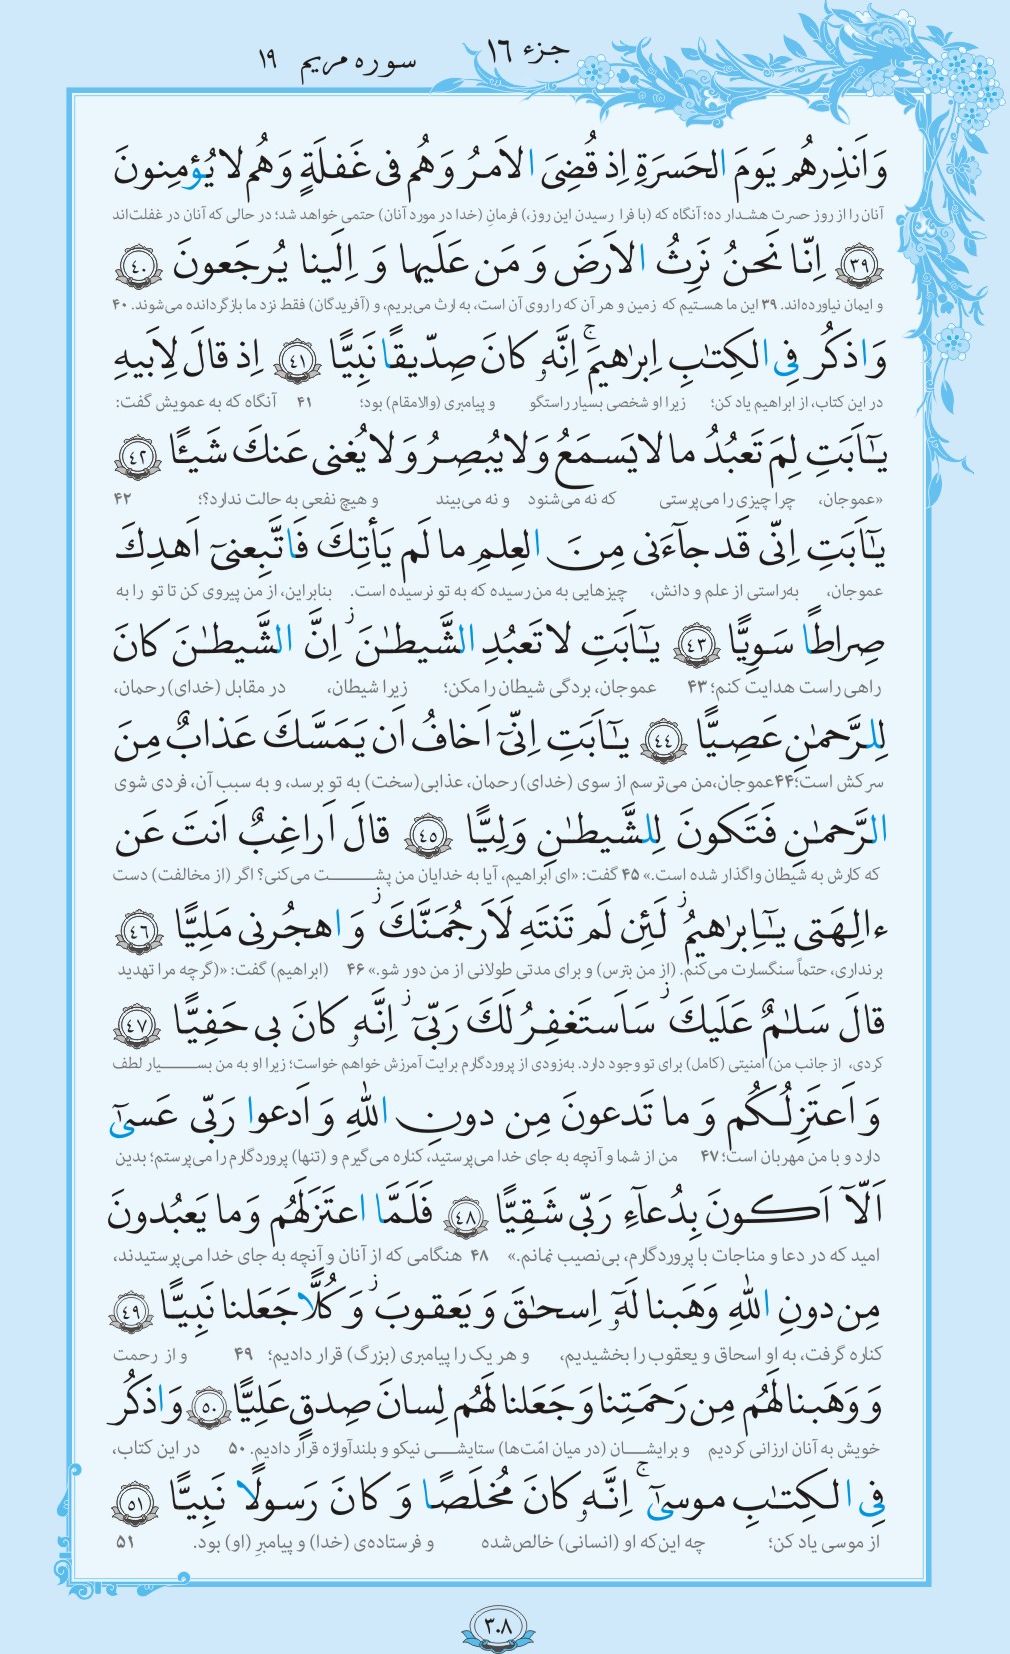 جزء ١٦
سوره مریم ١٩
وَ اَنذِرهُم يَومَ الحَسرَةِ اِذ قُضِىَ الاَمرُ وَ هُم فى غَفلَةٍ وَ هُم لا يُؤمِنونَ
آنان را از روز حسرت هشدار ده؛ آنگاه که (با فرا رسیدن این روز،) فرمانِ (خدا در مورد آنان) حتمی خواهد شد؛ در حالی که آنان در غفلت‌اند
﴿٣٩﴾ اِنّا نَحنُ نَرِثُ الاَرضَ وَ مَن عَلَيها وَ اِلَينا يُرجَعونَ ﴿٤٠﴾
و ایمان نیاورده‌اند. ۳۹ این ما هستیم که زمین و هر آن که را روی آن است، به ارث می‌بریم، و (آفریدگان) فقط نزد ما بازگردانده می‌شوند. ۴۰
وَ اذكُر فِى الكِتٰبِ اِبرٰهيمَ ۚ اِنَّهٗ كانَ صِدّيقًا نَبِيًّا ﴿٤١﴾ اِذ قالَ لِاَبيهِ
در این کتاب، از ابراهیم یاد کن؛ زیرا او شخصی بسیار راستگو و پیامبری (والامقام) بود؛ ۴۱ آنگاه که به عمویش گفت:
يٰٓاَبَتِ لِمَ تَعبُدُ ما لا يَسمَعُ وَ لا يُبصِرُ وَ لا يُغنى عَنكَ شَيئًا ﴿٤٢﴾
«عموجان، چرا چیزی را می‌پرستی که نه می‌شنود و نه می‌بیند و هیچ نفعی به حالت ندارد؟؛ ۴۲
يٰٓاَبَتِ اِنّى قَد جآءَنى مِنَ العِلمِ ما لَم يَأتِكَ فَاتَّبِعنىٓ اَهدِكَ
عموجان، به‌راستی از علم و دانش، چیزهایی به من رسیده که به تو نرسیده است. بنابراین، از من پیروی کن تا تو را به
صِراطًا سَوِيًّا ﴿٤٣﴾ يٰٓاَبَتِ لا تَعبُدِ الشَّيطٰنَ ۖ اِنَّ الشَّيطٰنَ كانَ
راهی راست هدایت کنم؛ ۴۳ عموجان، بردگی شیطان را مکن؛ زیرا شیطان، در مقابل (خدای) رحمان،
لِلرَّحمٰنِ عَصِيًّا ﴿٤٤﴾ يٰٓاَبَتِ اِنّىٓ اَخافُ اَن يَمَسَّكَ عَذابٌ مِنَ
سرکش است؛ ۴۴ عموجان، من می‌ترسم از سوی (خدای) رحمان، عذابی (سخت) به تو برسد، و به سبب آن، فردی شوی
الرَّحمٰنِ فَتَكونَ لِلشَّيطٰنِ وَلِيًّا ﴿٤٥﴾ قالَ اَراغِبٌ اَنتَ عَن
که کارش به شیطان واگذار شده است.» ۴۵ گفت: «ای ابراهیم، آیا به خدایان من پشت می‌کنی؟ اگر (از مخالفت) دست
ءالِهَتى يٰٓاِبرٰهيمُ ۖ لَئِن لَم تَنتَهِ لَاَرجُمَنَّكَ ۖ وَ اهجُرنى مَلِيًّا ﴿٤٦﴾
برنداری، حتماً سنگسارت می‌کنم. (از من بترس) و برای مدتی طولانی از من دور شو.» ۴۶ (ابراهیم) گفت: «(گرچه مرا تهدید
قالَ سَلٰمٌ عَلَيكَ ۖ سَاَستَغفِرُ لَكَ رَبّىٓ ۖ اِنَّهٗ كانَ بى حَفِيًّا ﴿٤٧﴾
کردی، از جانب من) امنیتی (کامل) برای تو وجود دارد. به‌زودی از پروردگارم برایت آمرزش خواهم خواست؛ زیرا او به من بسیار لطف
وَ اَعتَزِلُكُم وَ ما تَدعونَ مِن دونِ اللّٰهِ وَ اَدعوا رَبّى عَسىٰٓ
دارد و با من مهربان است؛ ۴۷ من از شما و آنچه به جای خدا می‌پرستید، کناره می‌گیرم و (تنها) پروردگارم را می‌پرستم؛ بدین
اَلّآ اَكونَ بِدُعآءِ رَبّى شَقِيًّا ﴿٤٨﴾ فَلَمَّا اعتَزَلَهُم وَ ما يَعبُدونَ
امید که در دعا و مناجات با پروردگارم، بی‌نصیب نمانم.» ۴۸ هنگامی که از آنان و آنچه به جای خدا می‌پرستیدند،
مِن دونِ اللّٰهِ وَهَبنا لَهٗٓ اِسحٰقَ وَ يَعقوبَ ۖ وَ كُلًّا جَعَلنا نَبِيًّا ﴿٤٩﴾
کناره گرفت، به او اسحاق و یعقوب را بخشیدیم، و هر یک را پیامبری (بزرگ) قرار دادیم؛ ۴۹ و از رحمت
وَ وَهَبنا لَهُم مِن رَحمَتِنا وَ جَعَلنا لَهُم لِسانَ صِدقٍ عَلِيًّا ﴿٥٠﴾ وَ اذكُر
خویش به آنان ارزانی کردیم و برایشان (در میان امّت‌ها) ستایشی نیکو و بلندآوازه قرار دادیم. ۵۰ در این کتاب،
فِى الكِتٰبِ موسىٰٓ ۚ اِنَّهٗ كانَ مُخلَصًا وَ كانَ رَسولًا نَبِيًّا ﴿٥١﴾
از موسی یاد کن؛ چه این‌که او (انسانی) خالص‌شده و فرستاده‌ی (خدا) و پیامبرِ (او) بود. ۵۱
٣٠٨